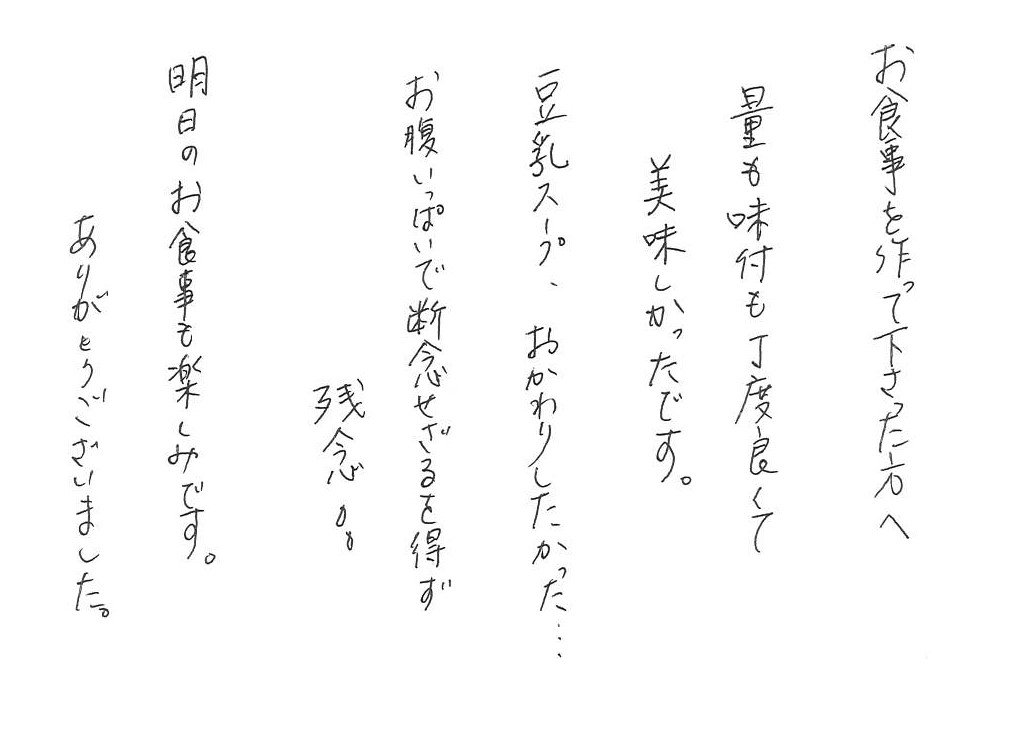 お食事を作って下さった方へ
量も味付も丁度良くて
美味しかったです。
豆乳スープ、おかわりしたかった…
お腹いっぱいで断念せざるを得ず
残念。。
明日のお食事も楽しみです。
ありがとうございました。